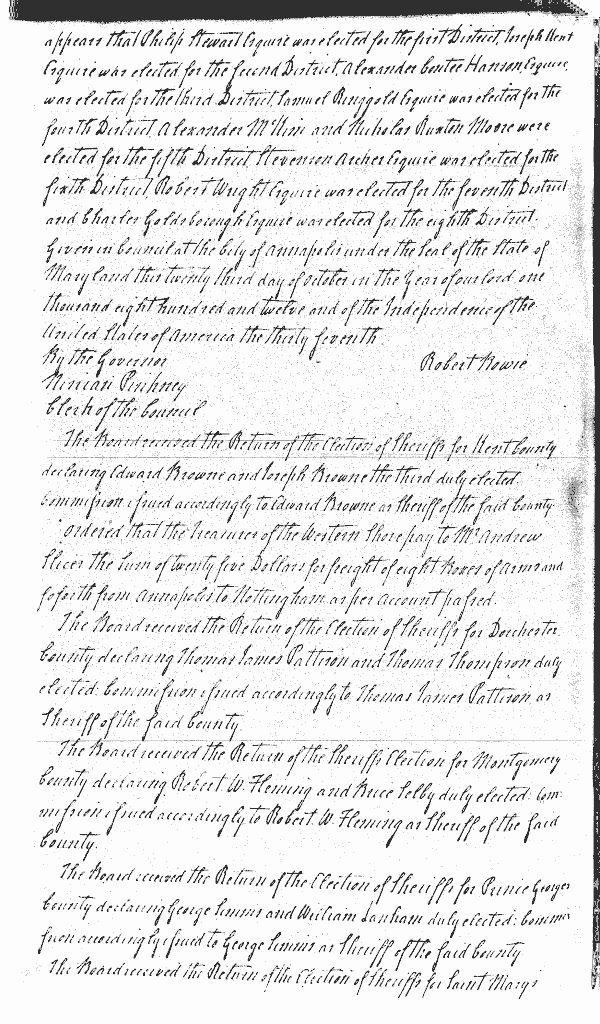 appears that Philip Stewart Esquire was elected for the first District, Joseph Kent
Esquire was elected for the second District, Alexander Contee Hanson Esquire
was elected for the third District, Samuel Ringgold Esquire was elected for the
fourth District, Alexander McKim and Nicholas Ruxton Moore were
elected for the fifth District, Stevenson Archer Esquire was elected for the
sixth District, Robert Wright Esquire was elected for the seventh District
and Charles Goldsborough Esquire was elected for the eighth District.
Given in Council at the City of Annapolis under the Seal of the State of
Maryland this twenty third day of October in the Year of our Lord one
thousand eight hundred and twelve and of the Independence of the
United States of America the thirty seventh
By the Governor Robert Bowie
Ninian Pinkney
Clerk of the Council
The Board received the Return of the Election of Sheriffs for Kent County
declaring Edward Browne and Joseph Browne the third duly elected.
Commission issued accordingly to Edward Browne as Sheriff of the said County.
Ordered that the Treasurer of the Western Shore pay to Mr Andrew
Slicer the Sum of twenty five Dollars for freight of eight Boxes of Arms and
so forth from Annapolis to Nottingham as per account passed.
The Board received the Return of the Election of Sheriffs for Dorchester
County declaring Thomas James Pattison and Thomas Thompson duly
elected: Commission issued accordingly to Thomas James Pattison as
Sheriff of the said County.
The Board received the Return of the Sheriffs Election for Montgomery
County declaring Robert W. Fleming and Brice Selby duly elected: Com
mission issued accordingly to Robert W. Fleming as Sheriff of the said
County.
The Board received the Return of the Election of Sheriffs for Prince Georges
County declaring George Simms and William Lanham duly elected: Commis
sion accordingly issued to George Simms as Sheriff of the said County
The Board received the Return of the Election of Sheriffs for Saint Mary's